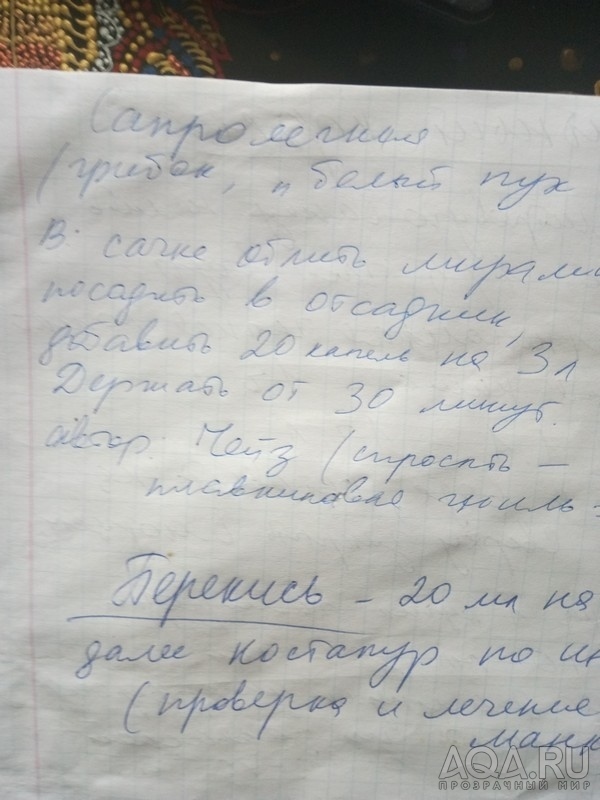 Сапролегния
(грибок, „белый пух
В сачке облить мирами
посадить в отсадник,
добавить 20 капель на 3л
Держать от 30 минут.
автор: Чейз (спросить –
плавниковая гниль -
Перекись – 20 мл на
далее костапур по ин
(проверка и лечение
манк
AQA.RU
ПРОЗРАЧНЫЙ МИР